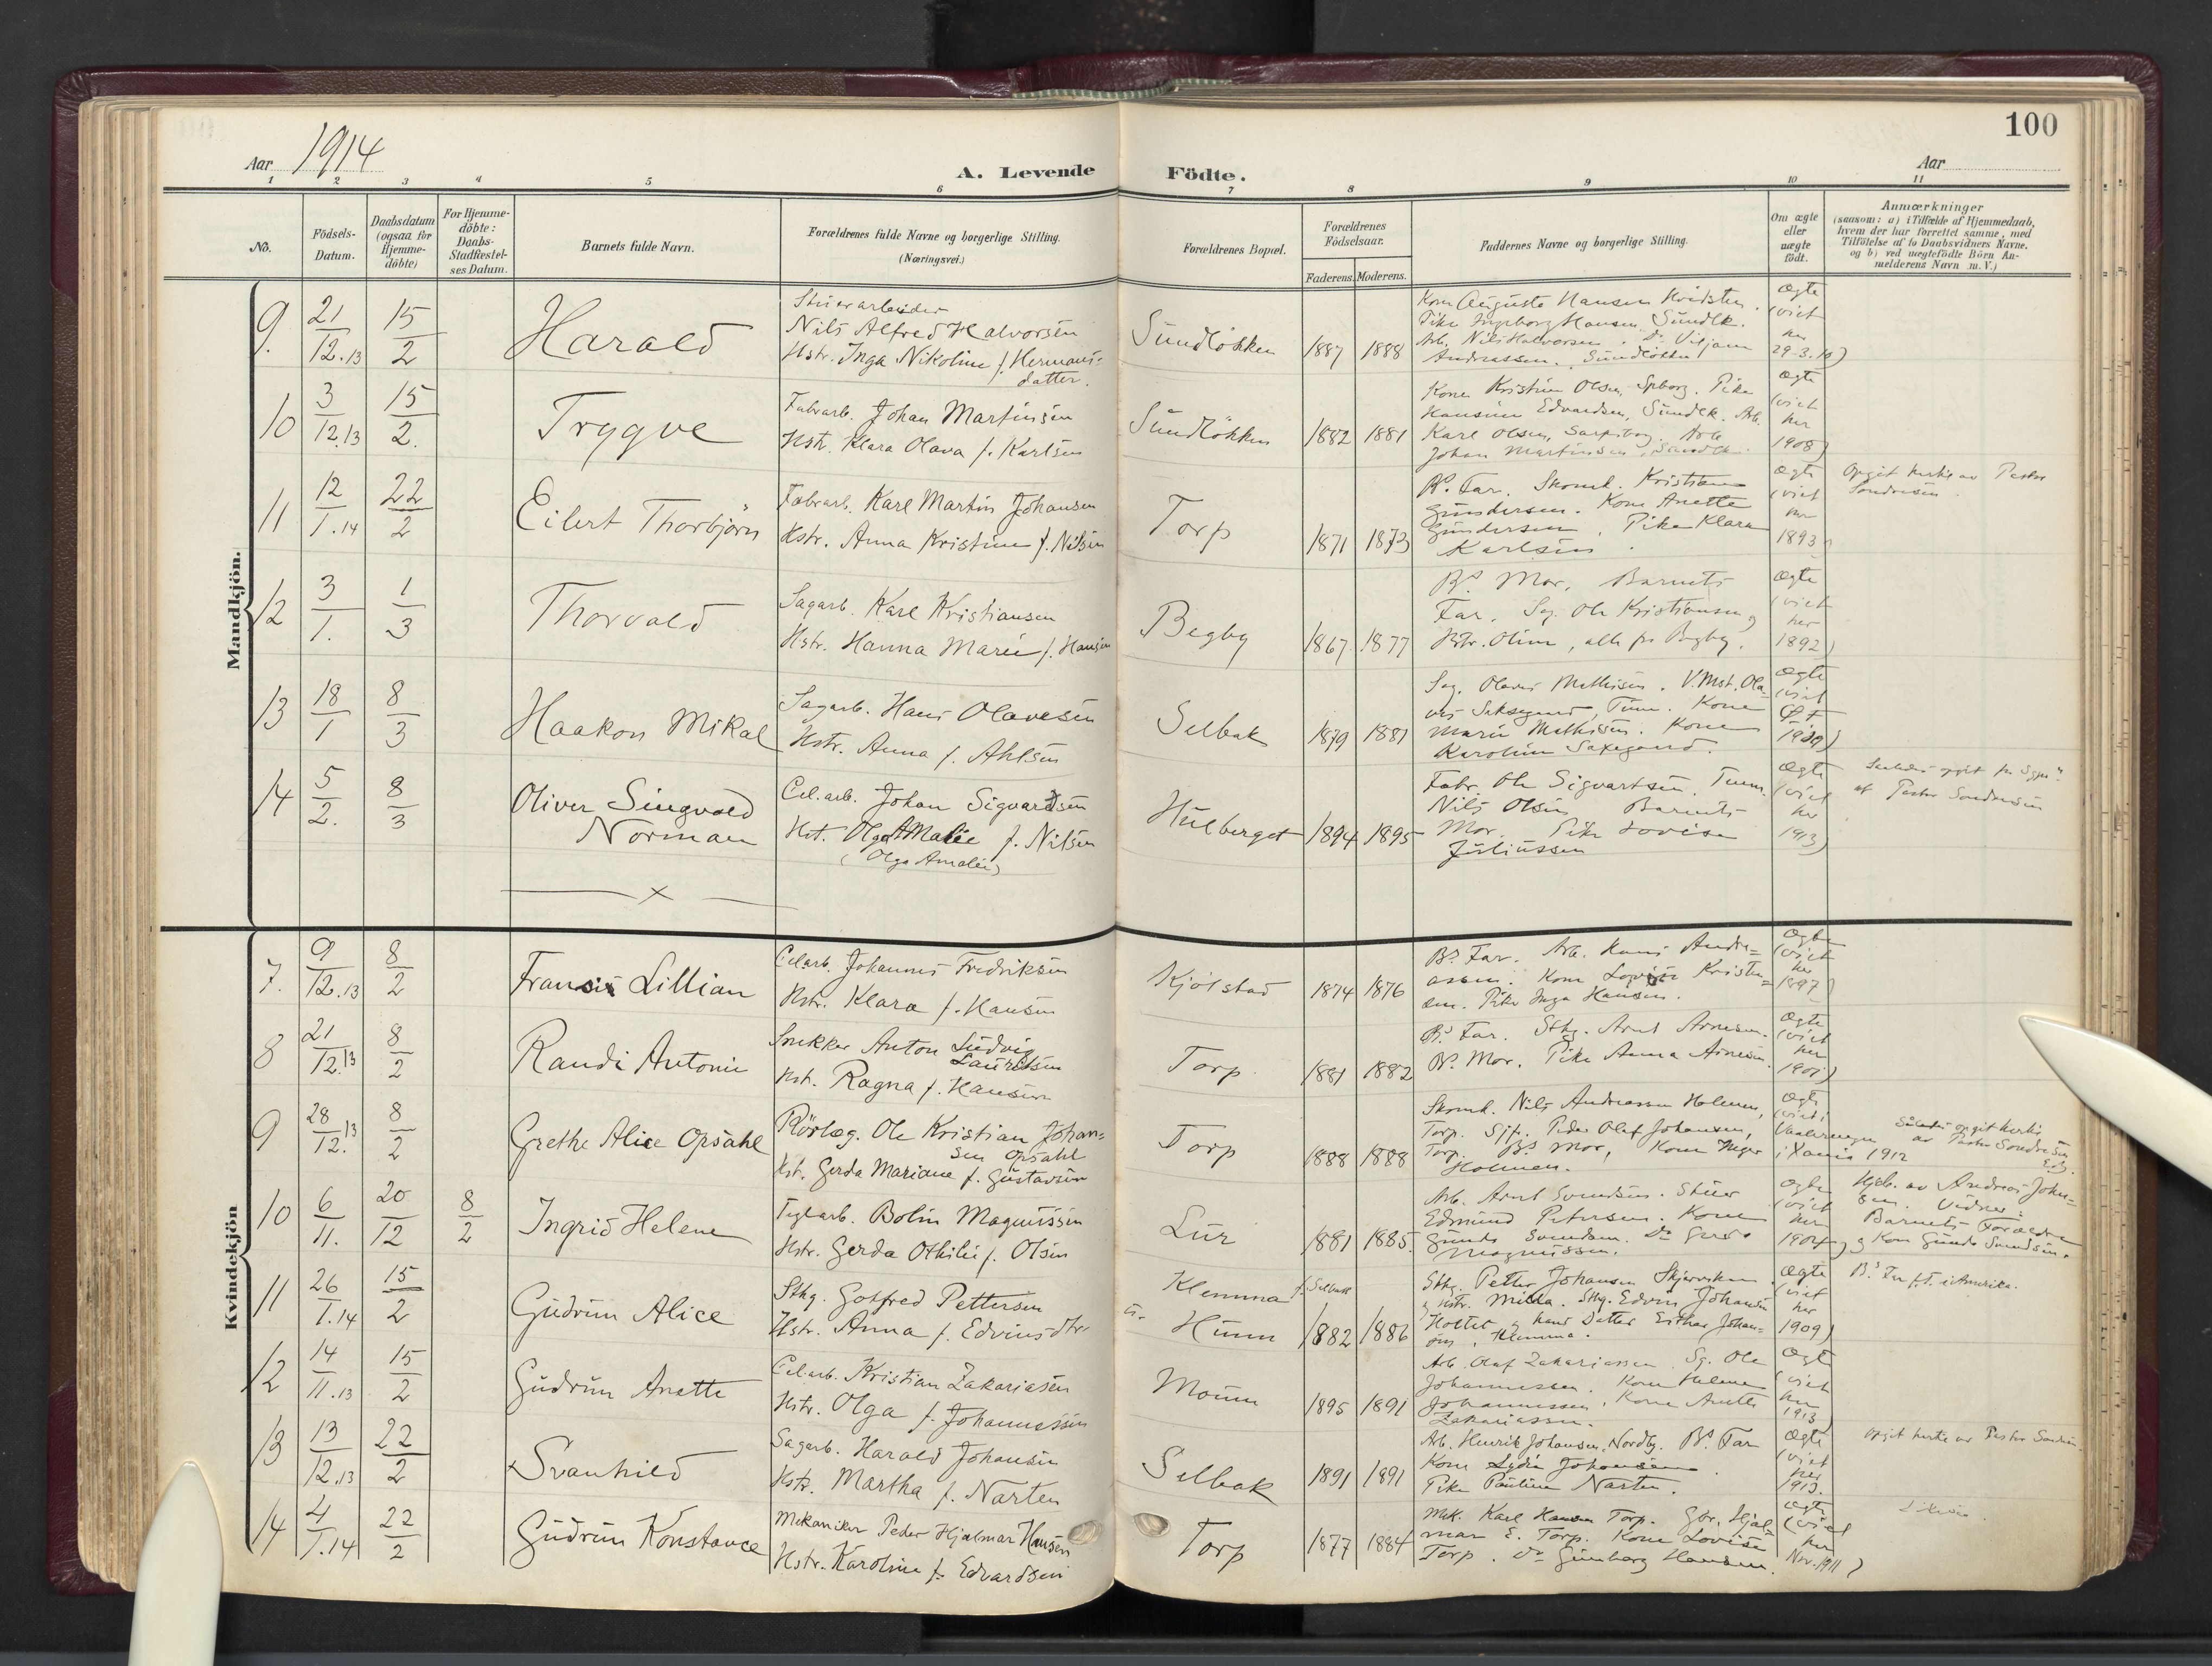 100
Aar 1914
A. Levende Födte.
Aar
1 2 3 4 5 6 7 8 9 10 11
No.
Födsels-
Datum.
Daabsdatum
(ogsaa for
Hjemme-
döbte)
For Hjemme-
döbte:
Daabs-
Stadfæstel-
ses Datum.
Barnets fulde Navn.
Forældrenes fulde Navne og borgerlige Stilling.
(Næringsvei.)
Forældrenes Bopæl.
Forældrenes
Födselsaar.
Faderens. Moderens.
Faddernes Navne og borgerlige Stilling.
Om ægte
eller
uægte
födt.
Anmærkninger
(saasom: a) i Tilfælde af Hjemmedaab,
hvem der har forrettet samme, med
Tilföielse af to Daabsvidners Navne,
og b) ved uægtefödte Börn An-
melderens Navn m. V.)
Mandkjön.
9. 21/12.13 15/2 Harald
Stuerarbeider
Nils Alfred Halvorsen
Hstr. Inga Nikoline f. Hermans-
datter.
Sundlökken 1887 1888
Kone Augusta Hansen
Pike Ingeborg Hansen, Sundlk.
Arb. Nils Halvorsen. Do Viljam
Andreassen. Sundlökken
Ægte
(viet
her
29-3.10)
10 3/12.13 15/2. Trygve
Fabrarb. Johan Martinsen
Hstr. Klara Olava f. Karlsen
Sundlökken 1882 1881
Kone Kristine Olsen, Spborg. Pike
Hansine Edvardsen, Sundlk. Arb.
Karl Olsen, Sarpsborg. Arb.
Johan Martinsen, Sundlk.
Ægte
(viet
her
1908)
11 12/1.14 22/2 Eilert Thorbjörn
Fabrarb. Karl Martin Johansen
Hstr. Anna Kristine f. Nilsen
Torp 1871 1873
Bs. Far. Skomk. Kristian
Gundersen. Kone Anette
Gundersen, Pike Klara
Karlsen.
Ægte
(viet
her
1893)
Opgit herfra av Pastor
12 3/1. 1/3 Thorvald
Sagarb. Karl Kristiansen
Hstr. Hanna Marie f. Hansen
Begby 1867 1877
Bs Mor, Barnets
Far, Sag. Ole Kristiansen og
Hstr. Oline, alle fr Begby.
Ægte
(viet
her
1892)
13 18/1 8/3 Haakon Mikal
Sagarb. Hans Olavesen
Hstr. Anna f. Ahlsen
Selbak 1879 1881
Sag. Olaves Mathisen. V.Mst. Ola-
ves Saksegaard, Tune. Kone
Marie Mathisen. Kone
Karoline Saxegaard.
Ægte
(viet
14 5/2. 8/3 Oliver Singvald
Norman
Cel.arb. Johan Sigvardsen
Hst. Olga AMalie f. Nilsen
(Olga Amalie)
Hulberget 1894 1895
Fabr. Ole Sigvartsen. Tune.
Nils Olsen Barnets
Mor. Pike Lovise
Juliussen
Ægte
(viet
her
1913)
af Pastor
x
Kvindekjön
7. 9/12.13 8/2 Fransis Lillian
Celarb. Johannes Fredriksen
Hstr. Klara f. Hansen
Kjölstad 1874 1876
Bs. Far. Arb. Hans Andre=
assen. Kone Lovise Kristen=
sen. Pike Inga Hansen.
Ægte
(viet
her
1897)
8 21/12.13 8/2 Randi Antonie
Snekker Anton Ludvig
Lauritsen
Hst. Ragna f. Hansen
Torp 1881 1882
Bs. Far. Sthg. Arnt Arnesen.
Bs. Mor. Pike Anna Arnesen.
Ægte
(viet
her
1901)
9 28/12.13 8/2 Grethe Alice Opsahl
Rörlæg. Ole Kristian Johan=
sen Opsahl
Hst. Gerda Mariane f. Gustavsen
Torp 1888 1888
Skomk. Nils Andreassen Holmen,
Torp. Sjf. Peder Olaf Johansen,
Torp. Bs. Mor, Kone Inger
Holmen.
Ægte
(viet i
Vaalerengen
i Xania 1912
Således opgit herfra
av Pastor
10 6/11. 20/12 8/2 Ingrid Helene
Teglarb. Bolin Magnussen
Hstr. Gerda Othilie f. Olsen
Lur 1881 1885.
Arb. Arnt Svendsen. Stuer
Edmund Petersen. Kone
Gunda Svendsen. Do Gerda
Magnussen.
Ægte
(viet
her
1904)
Hjdb. av Andreas Johan=
sen. Vidner:
Barnets Forældre
og Kone Gunda Svendsen.
11 26/1.14 15/2 Gudrun Alice
Sthg. Gotfred Pettersen
Hstr. Anna f. Edvinsdtr
Klemma f. Selbak
Hunn 1882 1886
Sthg. Petter Johansen Skjærviken
og Hstr. Milda. Sthg. Edvin Johansen
Holtet og hans Datter Esther Johan=
sen, Klemma.
Ægte
(viet
her
1909)
Bs Far f.T. i Amerika.
12 14/11.13 15/2 Gudrun Anette
Cel.arb. Kristian Zakariasen
Hstr. Olga f. Johannessen
Moum 1895 1891
Arb. Olaf Zakariassen. Sg. Ole
Johannessen. Kone Helene
Johannessen, Kone Anette
Zakariassen.
Ægte
(viet
her
1913)
13 13/12.13 22/2 Svanhild
Sagarb. Harald Johansen
Hstr. Martha f. Narten
Selbak 1891 1891
Arb. Henrik Johansen, Nordby. Bs. Far
Kone Lydia Johansen.
Pike Pauline Narten.
Ægte
(viet
her
1913.
Opgit herfra av Pastor
14 4/1.14 22/2 Gudrun Konstance
Mekaniker Peder Hjalmar Hansen
Hstr. Karoline f. Edvardsen
Torp 1877 1884
Mek. Karl Hansen Torp. Gbr. Hjal=
mar E. Torp. Kone Lovise
Torp. Do Gunborg Hansen.
Ægte
(viet
her
Nov. 1911)